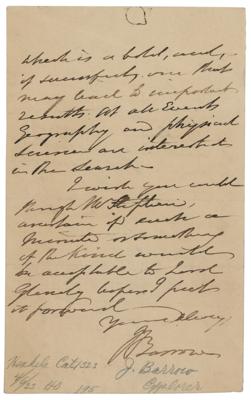 which is a bold, and,
if successful, one that
may lead to important
results. At all Events
Geography and physical
Science are interested
in the search.
I wish you could
through Mr Stephen,
ascertain if such a
Minute or something
of the kind would
be acceptable to Lord
Glenelg before I put
it forward.
Yours always,
J Barrow
J. Barrow
Explorer
195